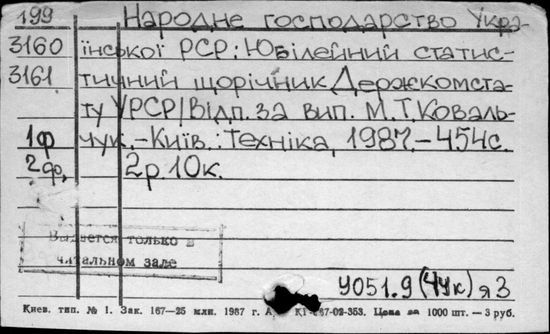 199 Народне господарство Укра-
3160 їнської РСР: Ювілейний статис-
3161 тичний щорічник Держкомста-
ту УРСР / Відп. за вип. М.Т. Коваль-
1ф чук. – Київ.: Техніка, 1987. – 454с.
2ф. 2р 10к.
Выдается только в
читальном зале
У051.9(4Ук)я3
Киев. тип. № 1. Зак. 167—25 млн. 1987 г. 67-02-353. Цена за 1000 шт. — 3 руб.